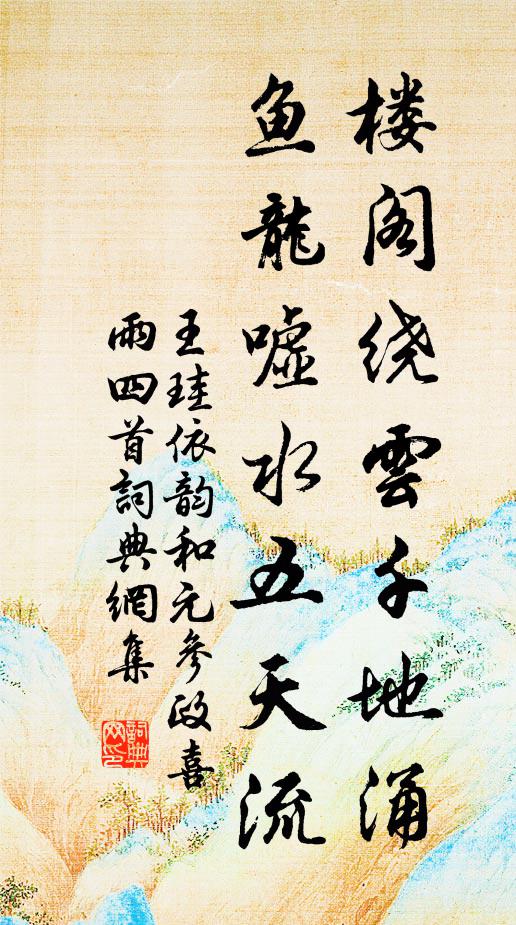 楼阁绕雲千地涌
鱼龍嘘水五天流
王珪依韵和元参政喜
雨四首詞典網集
詞典网印